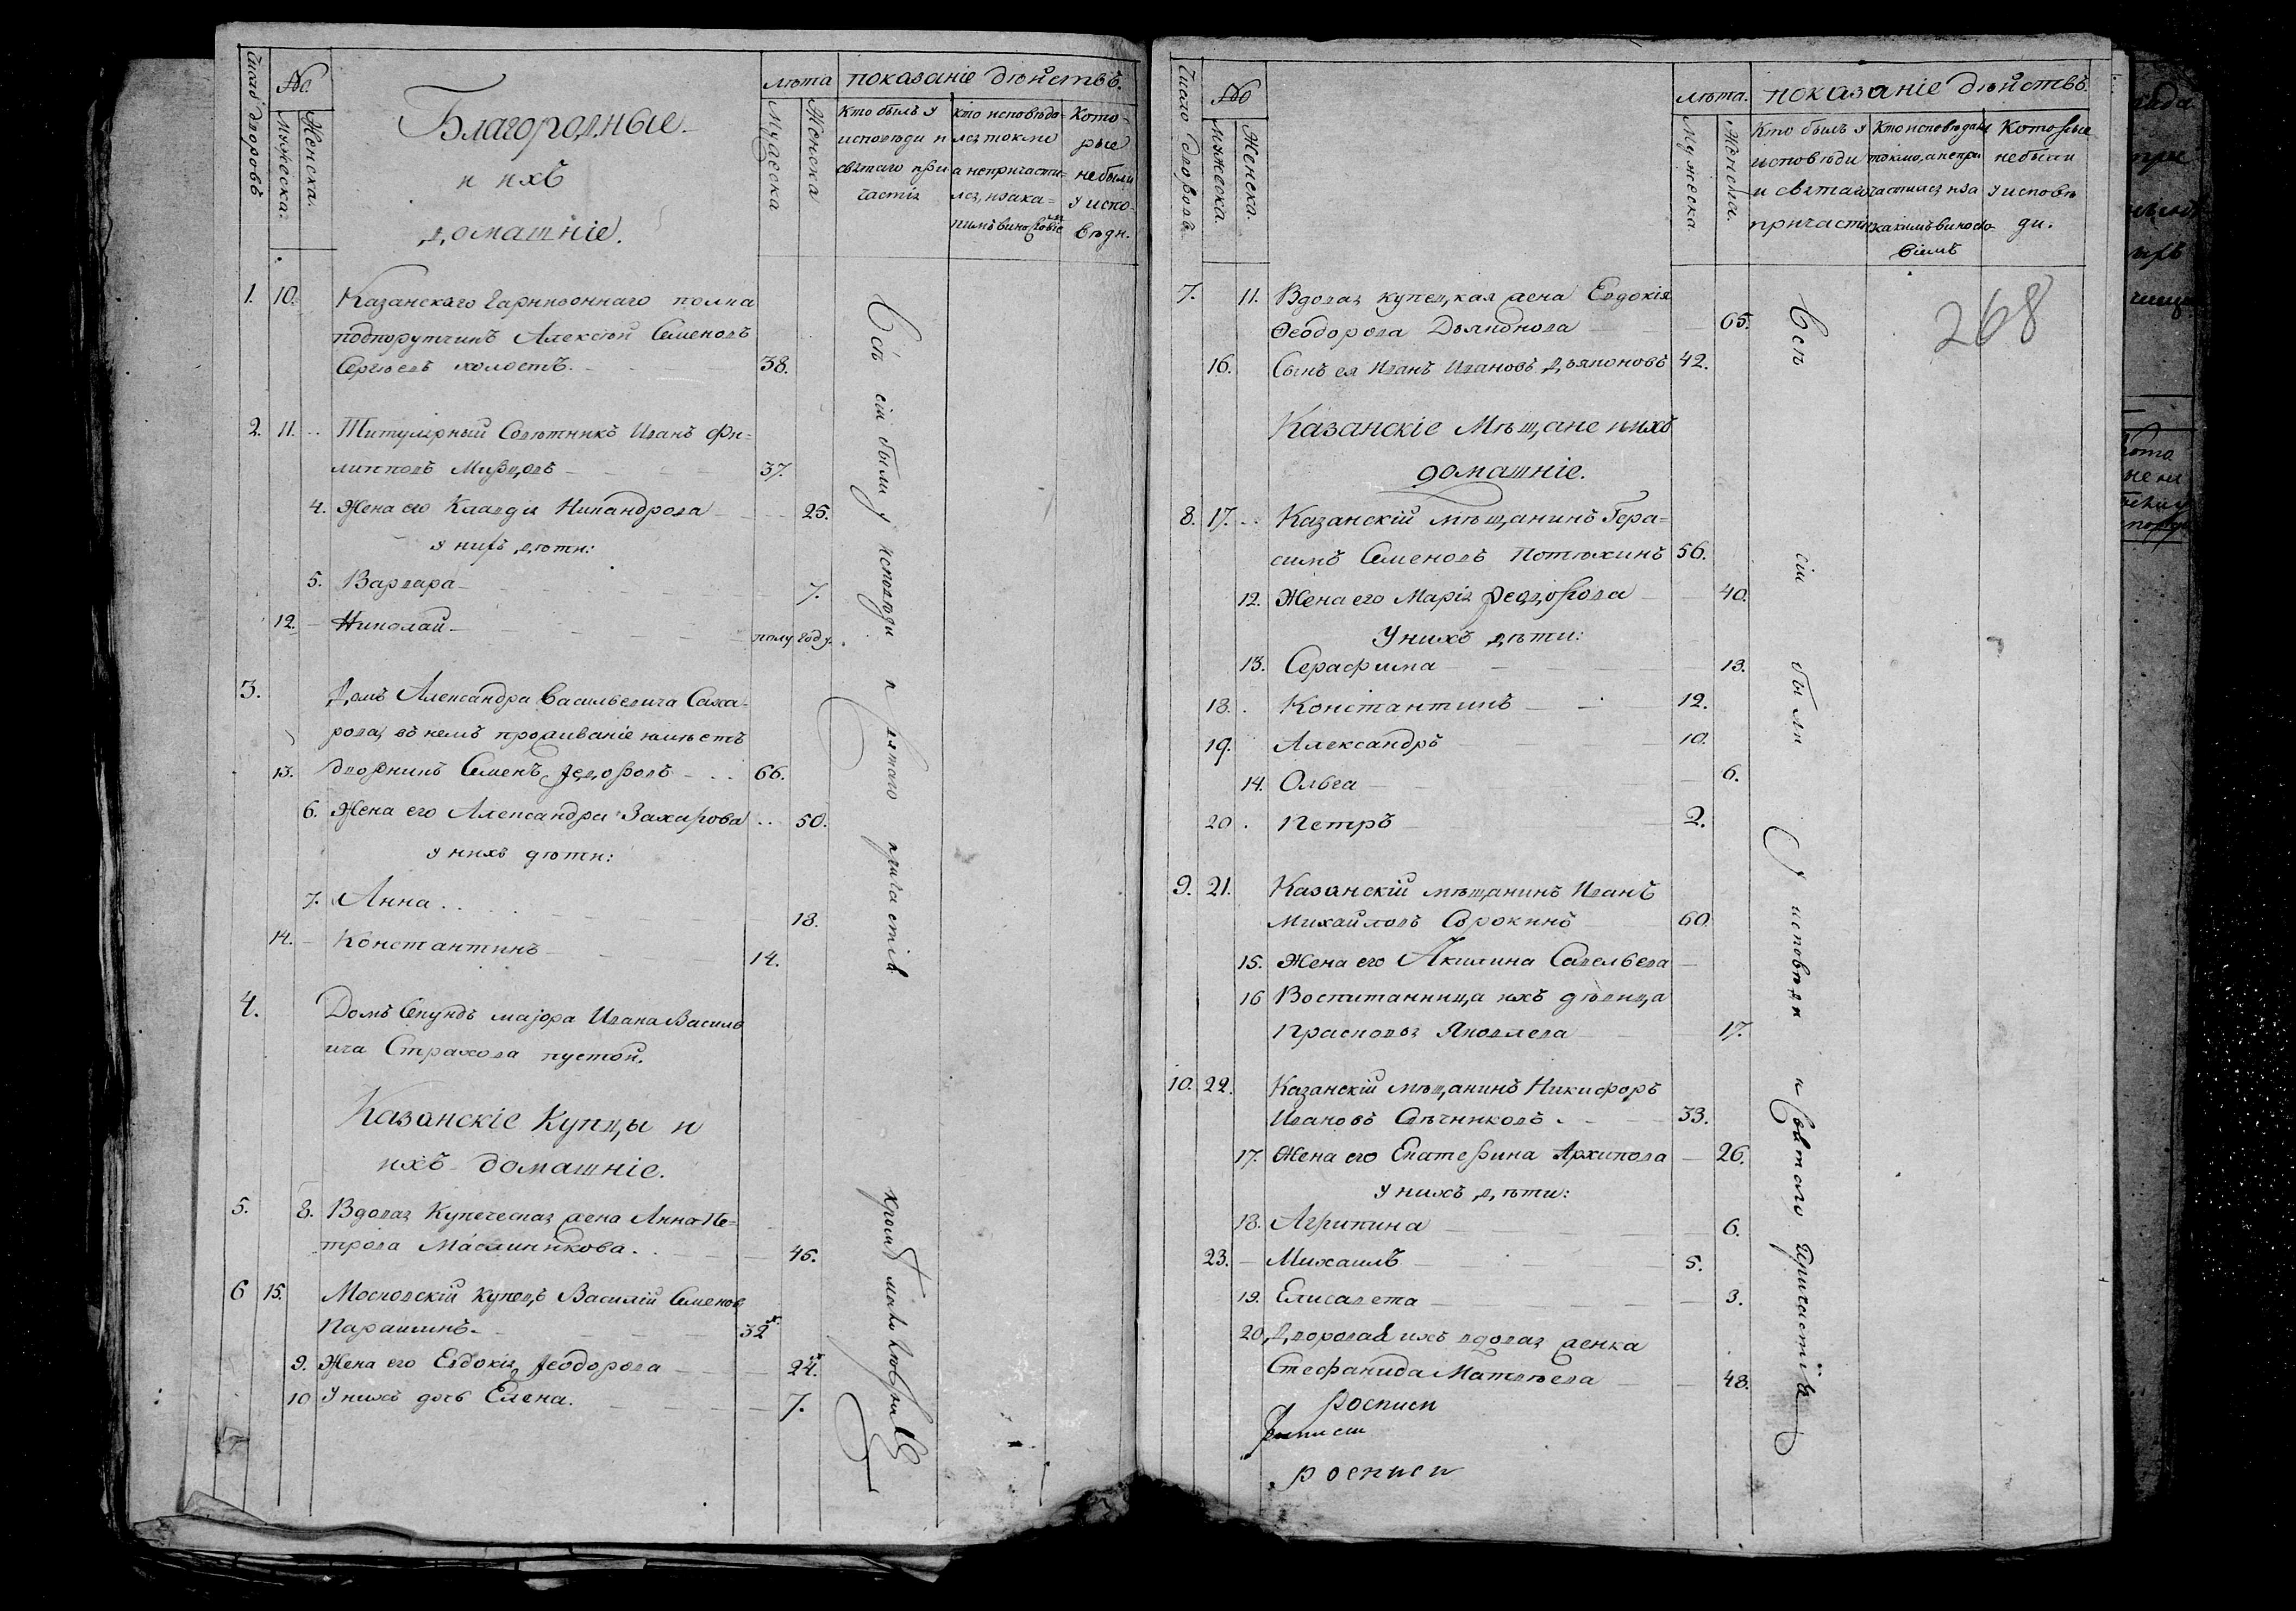 Число дворовъ
№
Мужеска.
Женска.
Благородныя
и ихъ
домашніе.
лѣта
Мужеска
Женска
показаніе дѣйствъ.
Кто былъ у
исповѣди и
святаго при
частія
кто исповѣдо-
лся токмо
а непричасти-
лся, и зака-
кимъ винословіемъ
Кото-
рые
не были
у испо-
вѣди.
1. 10. Казанскаго Гарнизоннаго полка
подпорутчикъ Алексѣй Семеновъ
Сергѣевъ холостъ. 38.
2. 11. Титулярный Совѣтникъ Иванъ Фи-
липповъ 37.
4. Жена его Клавдія Никандрова 25.
у нихъ дѣти:
5. Варвара 7.
12. Николай полугоду.
3. Домъ Александра Васильевича Саха-
рова, въ немъ проживаніе имѣетъ
13. дворникъ Семенъ Ѳедоровъ 66.
6. Жена его Александра Захарова 50.
у нихъ дѣти:
7. Анна 18.
14. Константинъ 14.
4. Домъ Секундъ маіора Ивана Василь
ича Страхова пустой.
Казанскіе Купцы и
ихъ домашніе.
5. 8. Вдовая Купеческая жена Анна Пе-
трова Масленникова. 45.
6 15. Московскій Купецъ Василій Семенов
Парашинъ. 32
9. Жена его Евдокія Ѳеодорова 24.
10 У нихъ дочь Елена. 7.
Всѣ сіи были у исповѣди и святаго причастія кромѣ
Число дворовъ
№
Мужеска.
Женска.
лѣта.
Мужеска
Женска.
показаніе дѣйствъ.
Кто былъ у
исповѣди
и святаго
причастія
Кто исповѣдался
токмо, а непри
частился и за
какимъ виносло-
віемъ
Которые
не были
у исповѣ
ди.
268
7. 11. Вдовая купецкая жена Евдокія
Ѳеодорова Дьяконова 65.
16. Сынъ ея Иванъ Ивановъ Дьяконовъ 42.
Казанскіе Мѣщане и ихъ
домашніе.
8. 17. Казанскій мѣщанинъ Гера-
симъ Семеновъ Потѣхинъ 56.
12. Жена его Марія Ѳедорова 40.
У нихъ дѣти:
13. Серафима 13.
18. Константинъ 12.
19. Александръ 10.
14. Ольга 6.
20. Петръ 2.
9. 21. Казанскій мѣщанинъ Иванъ
Михайловъ Сорокинъ 60.
15. Жена его Акилина Савельева
16 Воспитанница ихъ дѣвица
Прасковья Яковлева 17.
10. 22. Казанскій мѣщанинъ Никифоръ
Ивановъ Свѣчниковъ 33.
17. Жена его Екатерина Архипова 26.
У нихъ дѣти:
18. Агрипина 6.
23. Михаилъ 5.
19. Елисавета 3.
20. Дворовая ихъ вдовая женка
Стефанида Матвѣева 48.
росписи
росписи
росписи
Всѣ сіи были у исповѣди и Святаго Причастія